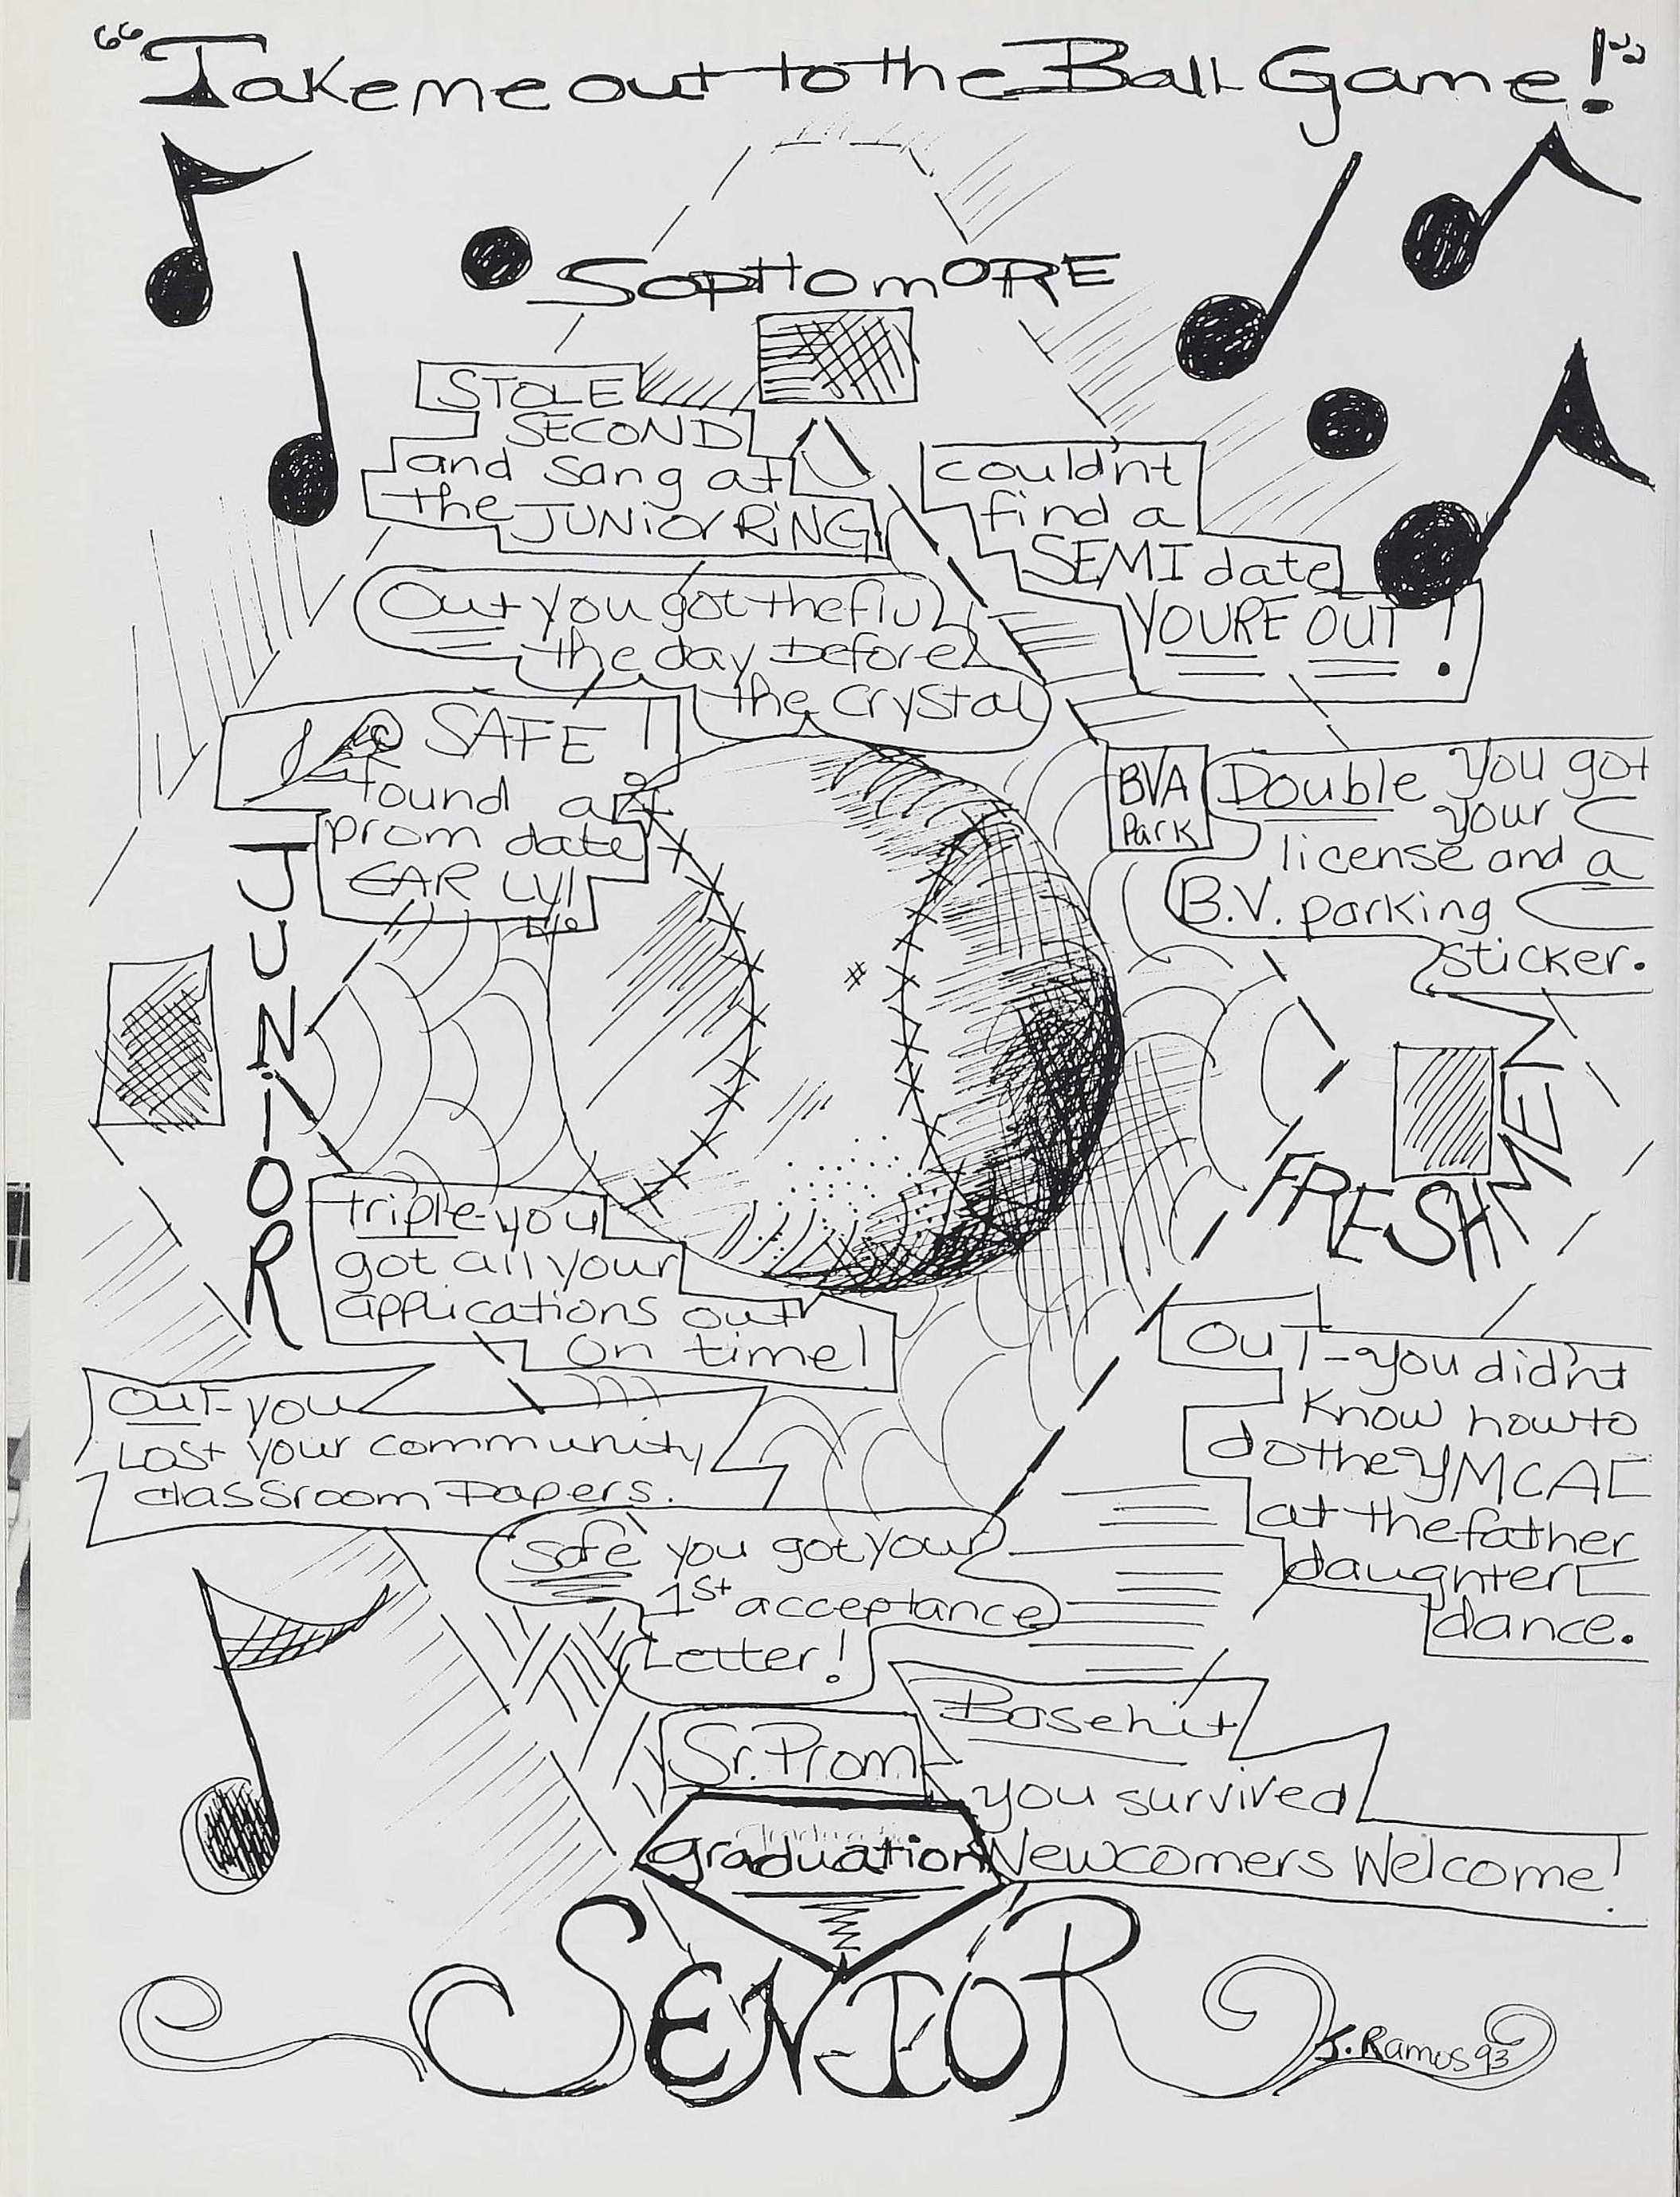 "Take me out to the Ball Game!"
SOPHOMORE
STOLE
SECOND
and sang at
the JUNIOR RING
couldn't
find a
SEMI date
YOURE OUT!
Out you got the flu
the day before
the Crystal
SAFE!
found a
prom date
EARLY!
BVA
Park
Double you got
your
license and a
B.V. parking
sticker.
JUNIOR
FRESHMEN
triple-you
got all your
applications out
on time!
OUT-you
Lost your community
classroom Papers.
OUT-you didn't
know how to
do the YMCA
at the father
daughter
dance.
safe you got your
1st acceptance
Letter!
Sr. Prom
Basehit
you survived
Newcomers Welcome!
graduation
SENIOR
J. Ramos 93